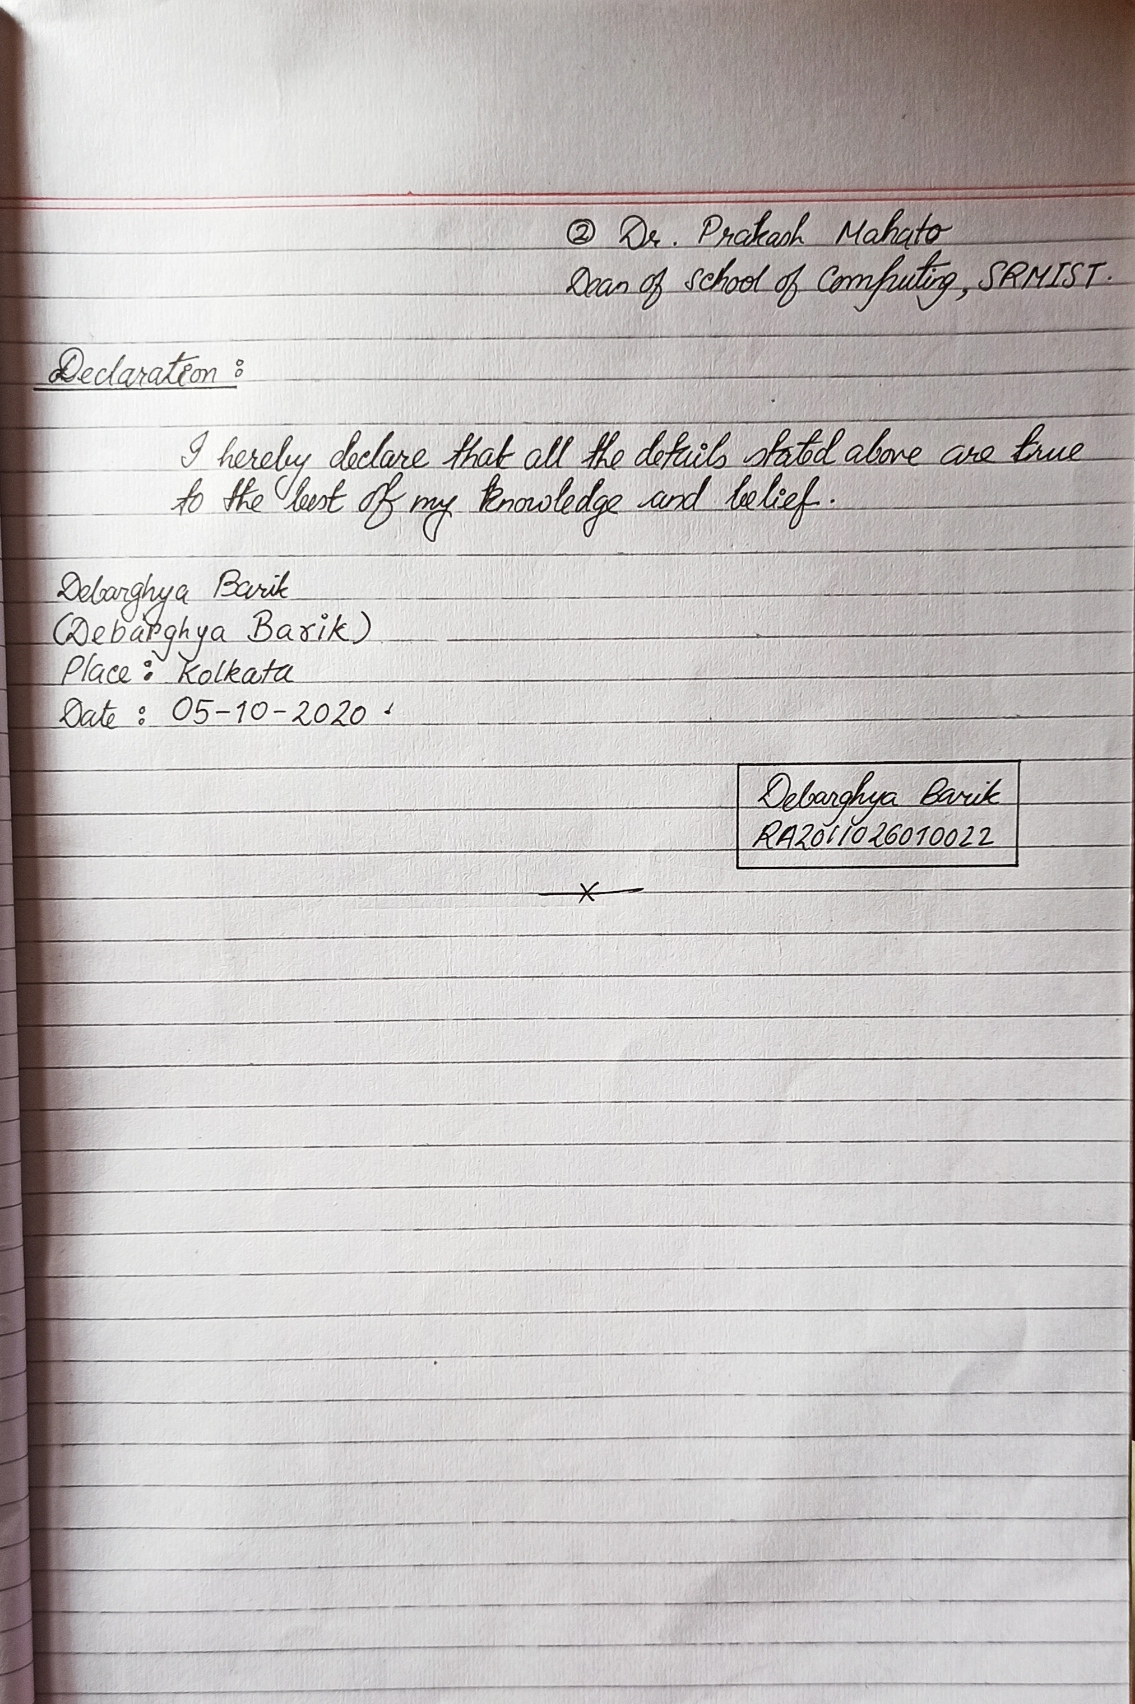 ② Dr. Prakash Mahato
Dean of school of Computing, SRMIST.
Declaration :
I hereby declare that all the details stated above are true
to the best of my knowledge and belief.
Debarghya Barik
(Debarghya Barik)
Place : Kolkata
Date : 05-10-2020.
Debarghya Barik
RA2011026010022
X